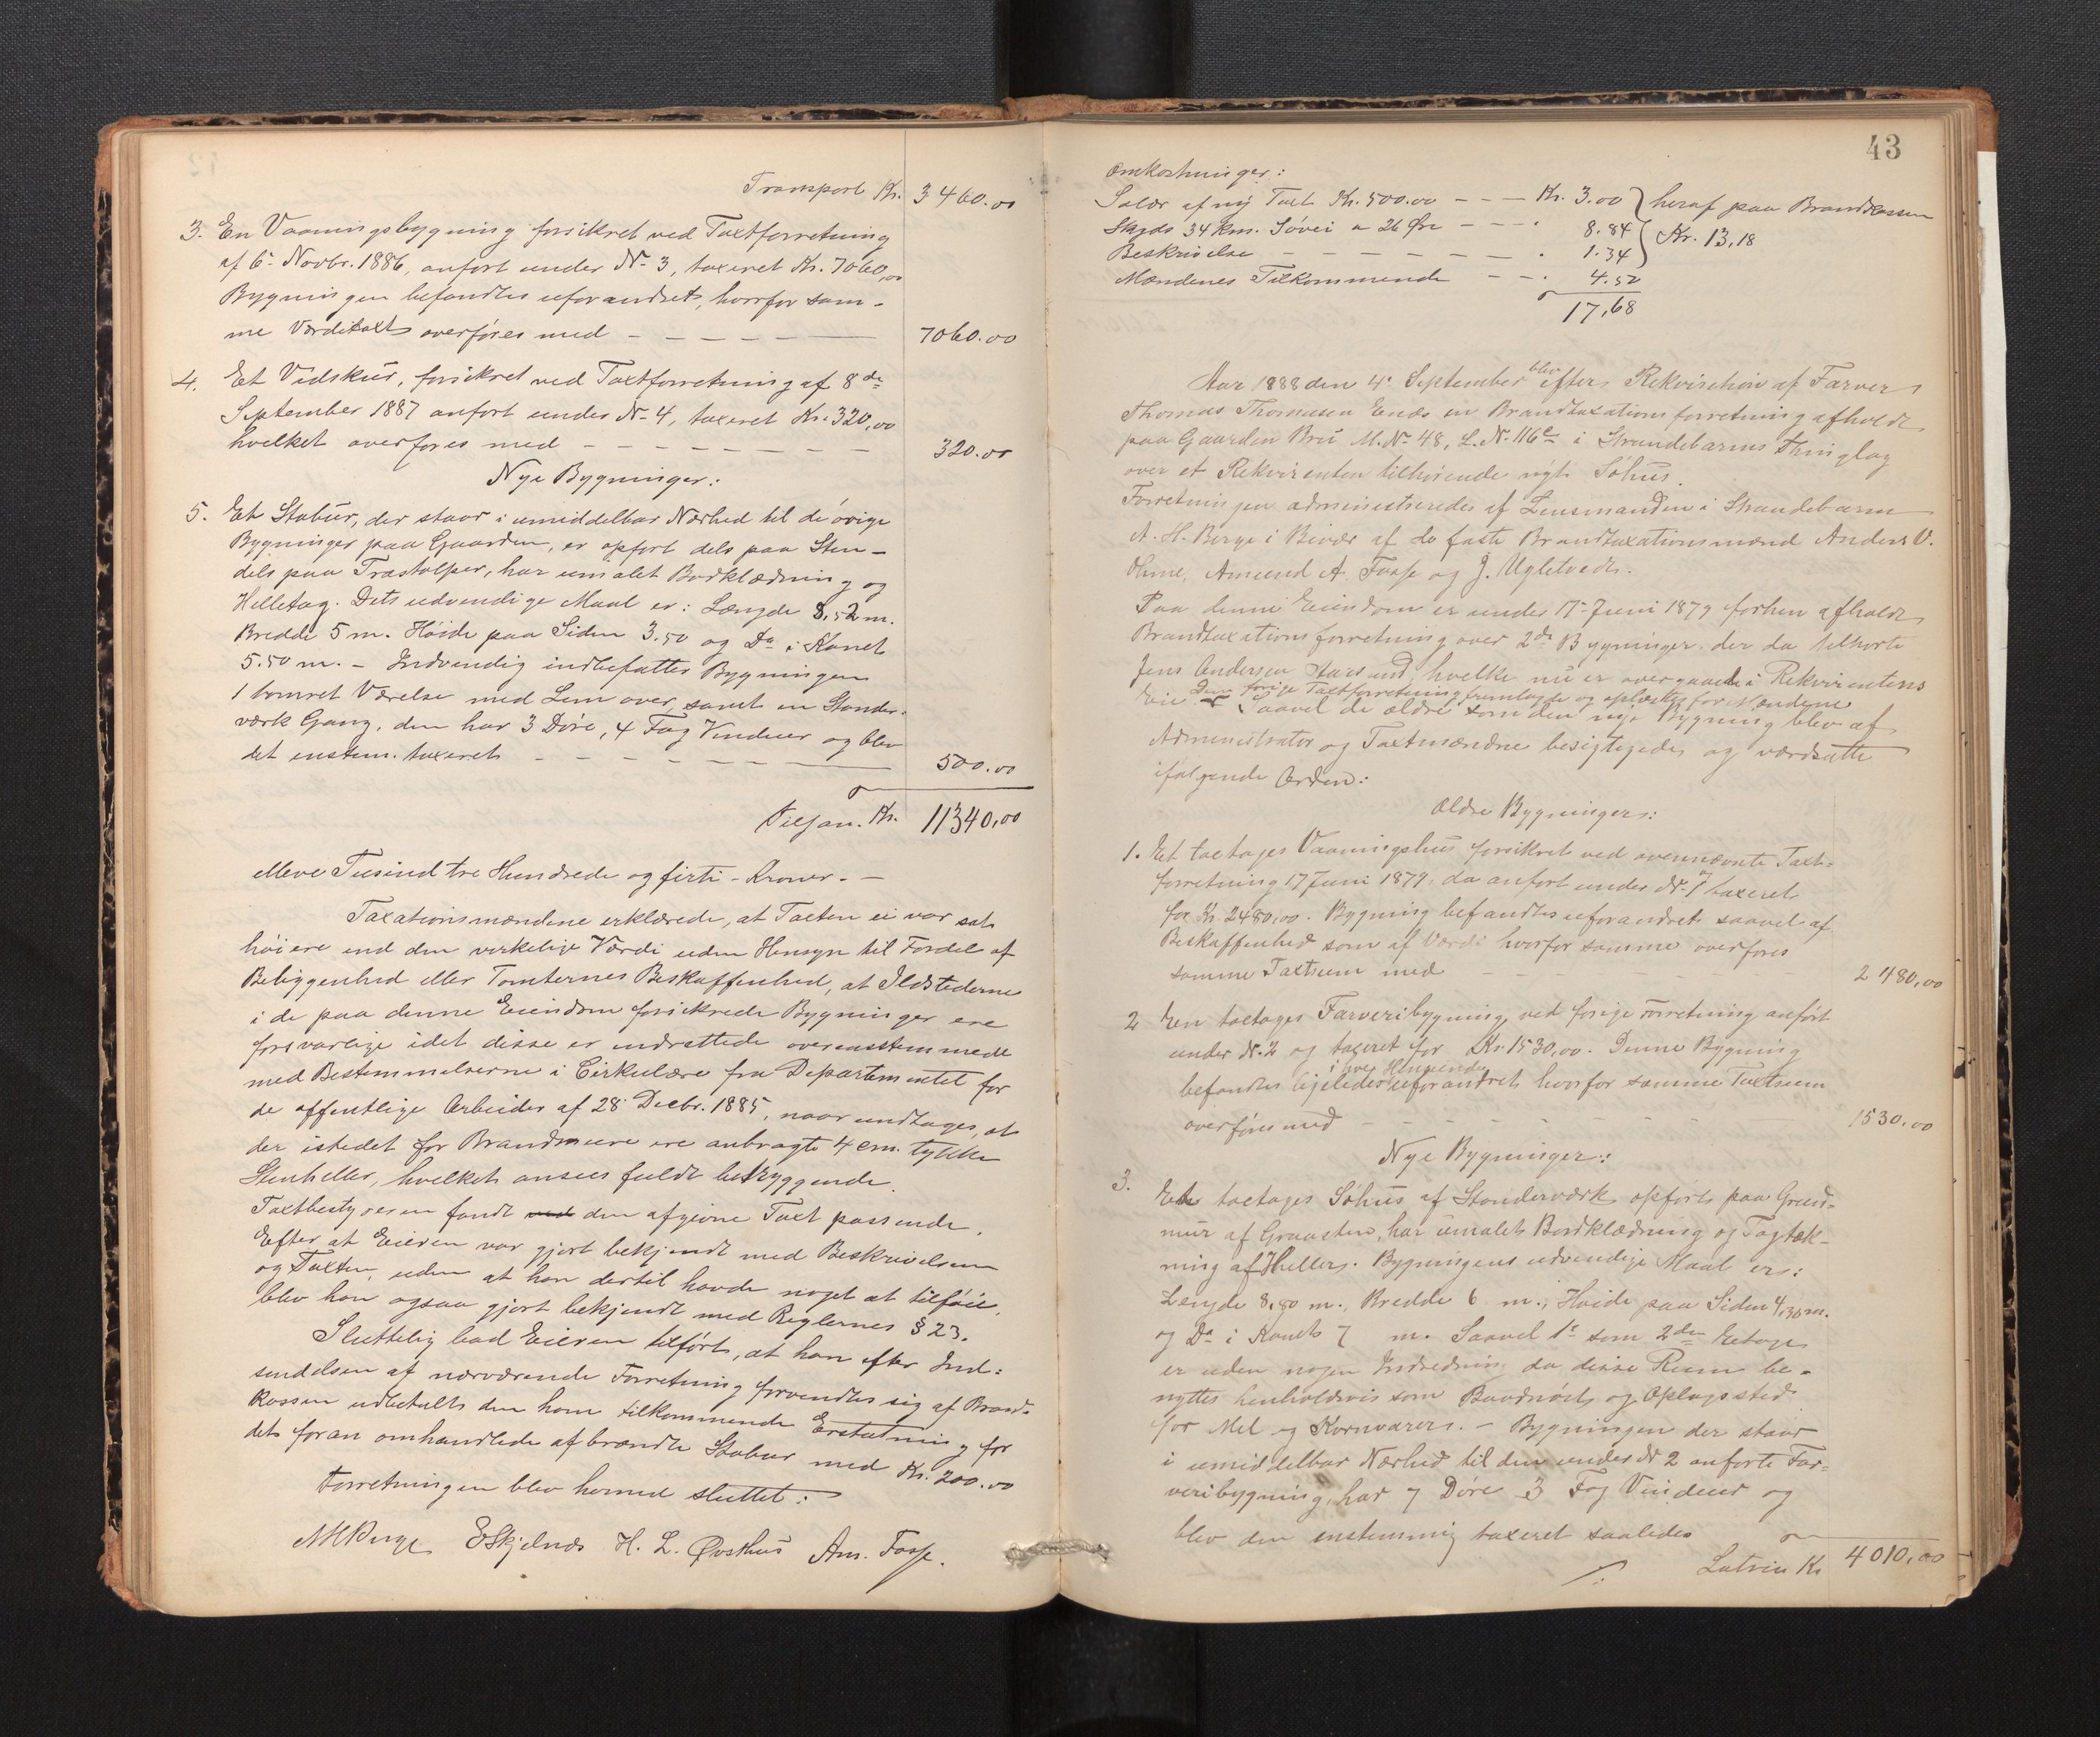 Transport Kr. 3460.00
3. En Vaaningsbygning forsikret ved Taxtforretning
af 6te Novbr. 1886, anfört under No 3, taxeret Kr. 7060,00
Bygningen befandtes uforandret, hvorfor sam-
me Værditaxt overföres med 7060.00
4. Et Vedskur, forsikret ved Taxtforretning af 8de
September 1887 anfört under No 4, taxeret Kr. 320,00
hvilket overföres med 320.00
Nye Bygninger:
5. Et Stabur, der staar i umiddelbar Nærhed til de övrige
Bygninger paa Gaarden, er opfört dels paa Sten-
dels paa Træstolper, har umalet Bordklædning og
Helletag. Dets udvendige Maal er: Længde 8,52 m.
Bredde 5 m. Höide paa Siden 3.50 og Do i Rönet
5.50 m. - Indvendig indbefatter Bygningen
1 tömret Værelse med Lem over, samt en Stender-
værk Gang, den har 3 Döre, 4 Fag Vinduer og blev
det enstem. taxeret 500.00
Tilsam. Kr. 11340,00
elleve Tusind tre Hundrede og firti - Kroner. -
Taxationsmændene erklærede, at Taxten ei var sat
höiere end den virkelige Værdi uden Hensyn til Fordel af
Beliggenhed eller Tomternes Beskaffenhed, at Ildstederne
i de paa denne Eiendom forsikrede Bygninger ere
forsvarlige idet disse er indrettede overensstemmede
med Bestemmelserne i Cirkulære fra Departementet for
de offentlige Arbeider af 28 Decbr. 1885, naar undtages, at
der istedet for Brandmure ere anbragte 4 cm. tykke
Stenheller, hvilket ansees fuldt betryggende.
Taxtbestyreren fandt ved den afgivne Taxt passende.
Efter at Eieren var gjort bekjendt med Beskrivelsen
og Taxten, uden at han dertil havde noget at tilföie,
blev han ogsaa gjort bekjendt med Reglernes § 23.
Sluttelig bad Eieren tilfört, at han efter Ind-
sendelsen af nærværende Forretning forventer sig af Brand-
kassen udbetalt den ham tilkommende Erstatning for
det foran omhandlede afbrændte Stabur med Kr. 200.00
Forretningen blev hermed sluttet:
AHBerge ESkjelnes H. L. Øvsthus Am. Fosse.
43
Omkostninger:
Salær af ny Taxt Kr. 500.00 - - - Kr. 3.00 heraf paa Brandkassen
Skyds 34 km. Sövei a 26 Öre - - - 8.84 Kr. 13,18
Beskrivelse - - - 1.34
Mændenes Tilkommende - - - 4.50
17,68
Aar 1888 den 4de September blev efter Rekvisition af Farver
Thomas Thomasen Ænæs en Brandtaxationsforretning afholdt
paa Gaarden Bru M. No 48, L. No 116c i Strandebarms Thinglag
over et Rekvirenten tilhörende nyt Söhus.
Forretningen administreredes af Lensmanden i Strandebarm
A. H. Berge i Bivær af de faste Brandtaxationsmænd Anders V.
Amund A. Fosse og J. Ugletvedt.
Paa denne Eiendom er under 17de Juni 1879 forhen afholdt
Brandtaxationsforretning over 2de Bygninger, der da tilhörte
Jens Andersen hvilke nu er overgaaede i Rekvirentens
Eie. Den forrige Taxtforretning fremlagdes og oplæstes for Mændene
Saavel de ældre som den nye Bygning blev af
Administrator og Taxtmændne besigtigede og værdsatte
ifölgende Orden:
Ældre Bygninger:
1. Et toetages Vaaningshus forsikret ved ovennævnte Taxt-
forretning 17 Juni 1879, da anfört under No 1 og taxeret
for Kr. 2480,00. Bygning befandtes uforandret saavel af
Beskaffenhed som af Værdi hvorfor samme overföres
samme Taxtsum med 2480,00
2 En toetages Farveribygning, ved forrige Forretning anfört
under No. 2 og taxeret for Kr. 1530,00. Denne Bygning
befandtes ligeledes i hver Henseende uforandret hvorfor samme Taxtsum
overföres med 1530.00
Nye Bygninger:
3. Et toetages Söhus af Stenderværk opfört paa Grund-
mur af Graasten, har umalet Bordklædning og Tagtæk-
ning af Heller. Bygningens udvendige Maal er:
Længde 8,80 m., Bredde 6 m., Höide paa Siden 4,30 m.
og Do i Rönet 7 m. Saavel 1e som 2den Etage
er uden nogen Indredning da disse Rum be-
nyttes henholdsvis som Baadnöst og Oplagssted
for Mel og Kornvarer. - Bygningen der staar
i umiddelbar Nærhed til den under No 2 anförte Far-
veribygning, har 7 Döre 3 Fag Vinduer og
blev den enstemmig taxeret saaledes
Latrin Kr 4010,00